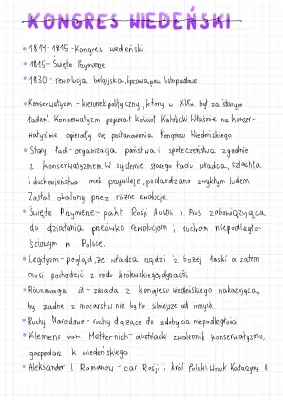 KONGRES WIEDEŃSKI
• 1814-1815 - Kongres wiedeński
• 1815 - Święte Przymierze
• 1830 - rewolucja belgijska, lipcowa, pow. listopadowe
• Konserwatyzm - kierunek polityczny, który w XIXw. był za starym
ładem. Konserwatyzm popierał Kościół Katolicki. Właśnie na konser-
watyzmie operały się postanowienia Kongresu Wiedeńskiego
• Stary ład - organizacja państwa i społeczeństwa zgodnie
z konserwatyzmem. W systemie starego ładu władca, szlachta
i duchowieństwo mieli przywileje, pogardzano zwykłym ludem.
Został obalony przez różne ewolucje.
• Święte Przymierze - pakt Rosji Austrii i Prus zobowiązująca
do działania przeciwko rewolucjom i ruchom niepodległo-
ściowym w Polsce.
• Legitym - pogląd, że władca rządzi z bożej łaski a zatem
musi pochodzić z rodu królewskiego, dynastii
• Równowaga sił - zasada z kongresu wiedeńskiego nakazująca,
by żadne z mocarstw nie było silniejsze od innych
• Ruchy Narodowe - ruchy dążące do zdobycia niepodległości
• Klemens von Metternich - austriacki zwolennik konserwatyzmu,
gospodarz k. wiedeńskiego
• Aleksander I Romanow - car Rosji i król Polski. Wnuk Katarzyny II